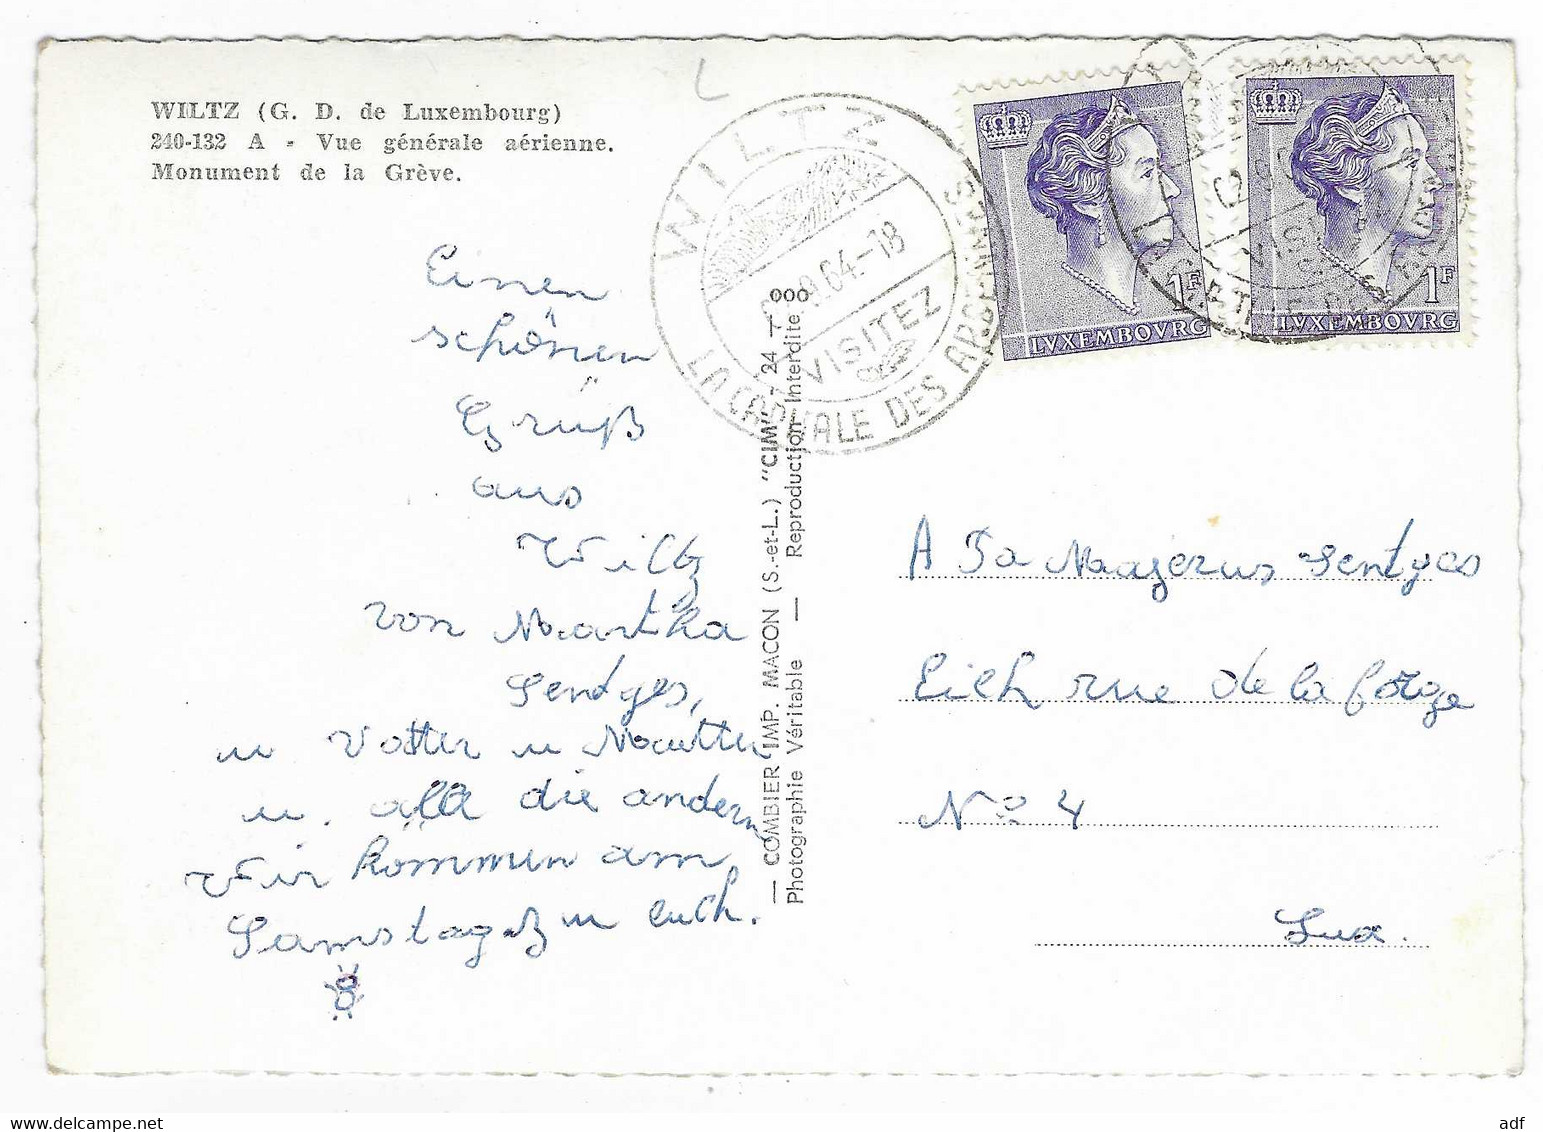 WILTZ (G. D. de Luxembourg)
240-132 A - Vue générale aérienne.
Monument de la Grève.
Einen
schönen
Gruß
aus
Wiltz
von Martha
Sentges,
u Vatter u Mutter
u. all die andern
Wir kommen am
Samstag zu euch.
WILTZ
9.64-18
VISITEZ
LA CAPITALE DES ARDENNES
— COMBIER IMP. MACON (S.-et-L.) "CIM" - 24 —
Photographie Véritable — Reproduction Interdite
1F
LVXEMBOVRG
1F
LVXEMBOVRG
A Fa Maajerus Sentges
Eich rue de la forge
No 4
Lux.
adf